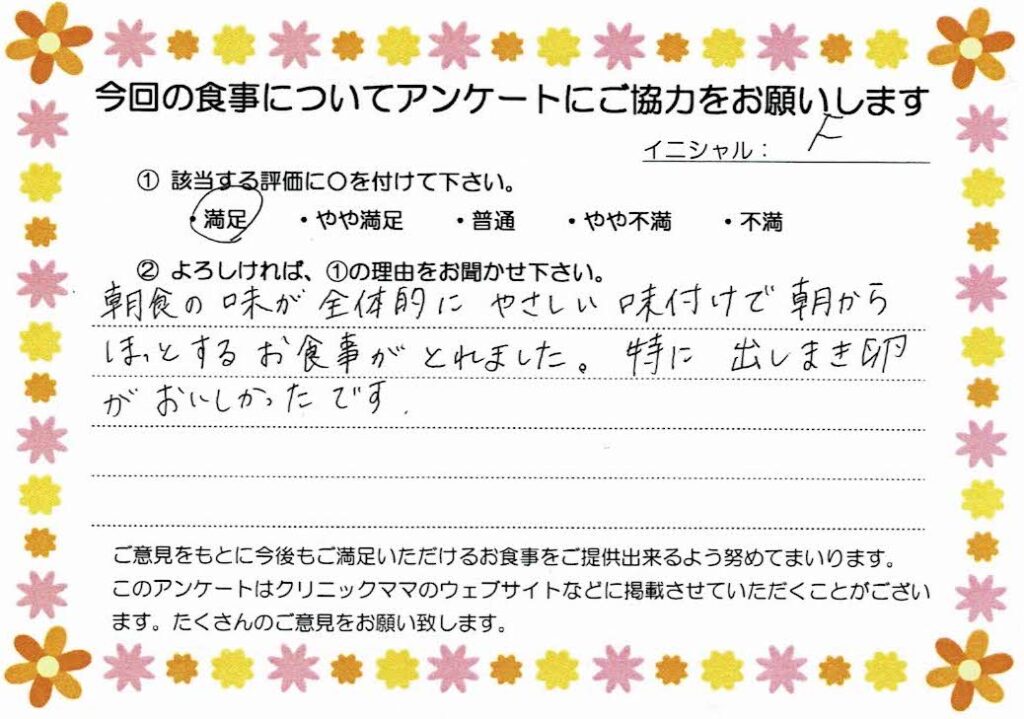 今回の食事についてアンケートにご協力をお願いします
イニシャル：
① 該当する評価に〇を付けて下さい。
・満足 ・やや満足 ・普通 ・やや不満 ・不満
② よろしければ、①の理由をお聞かせ下さい。
朝食の味が全体的にやさしい味付けで朝から
ほっとするお食事がとれました。特に出しまき卵
がおいしかったです.
ご意見をもとに今後もご満足いただけるお食事をご提供出来るよう努めてまいります。
このアンケートはクリニックママのウェブサイトなどに掲載させていただくことがござい
ます。たくさんのご意見をお願い致します。